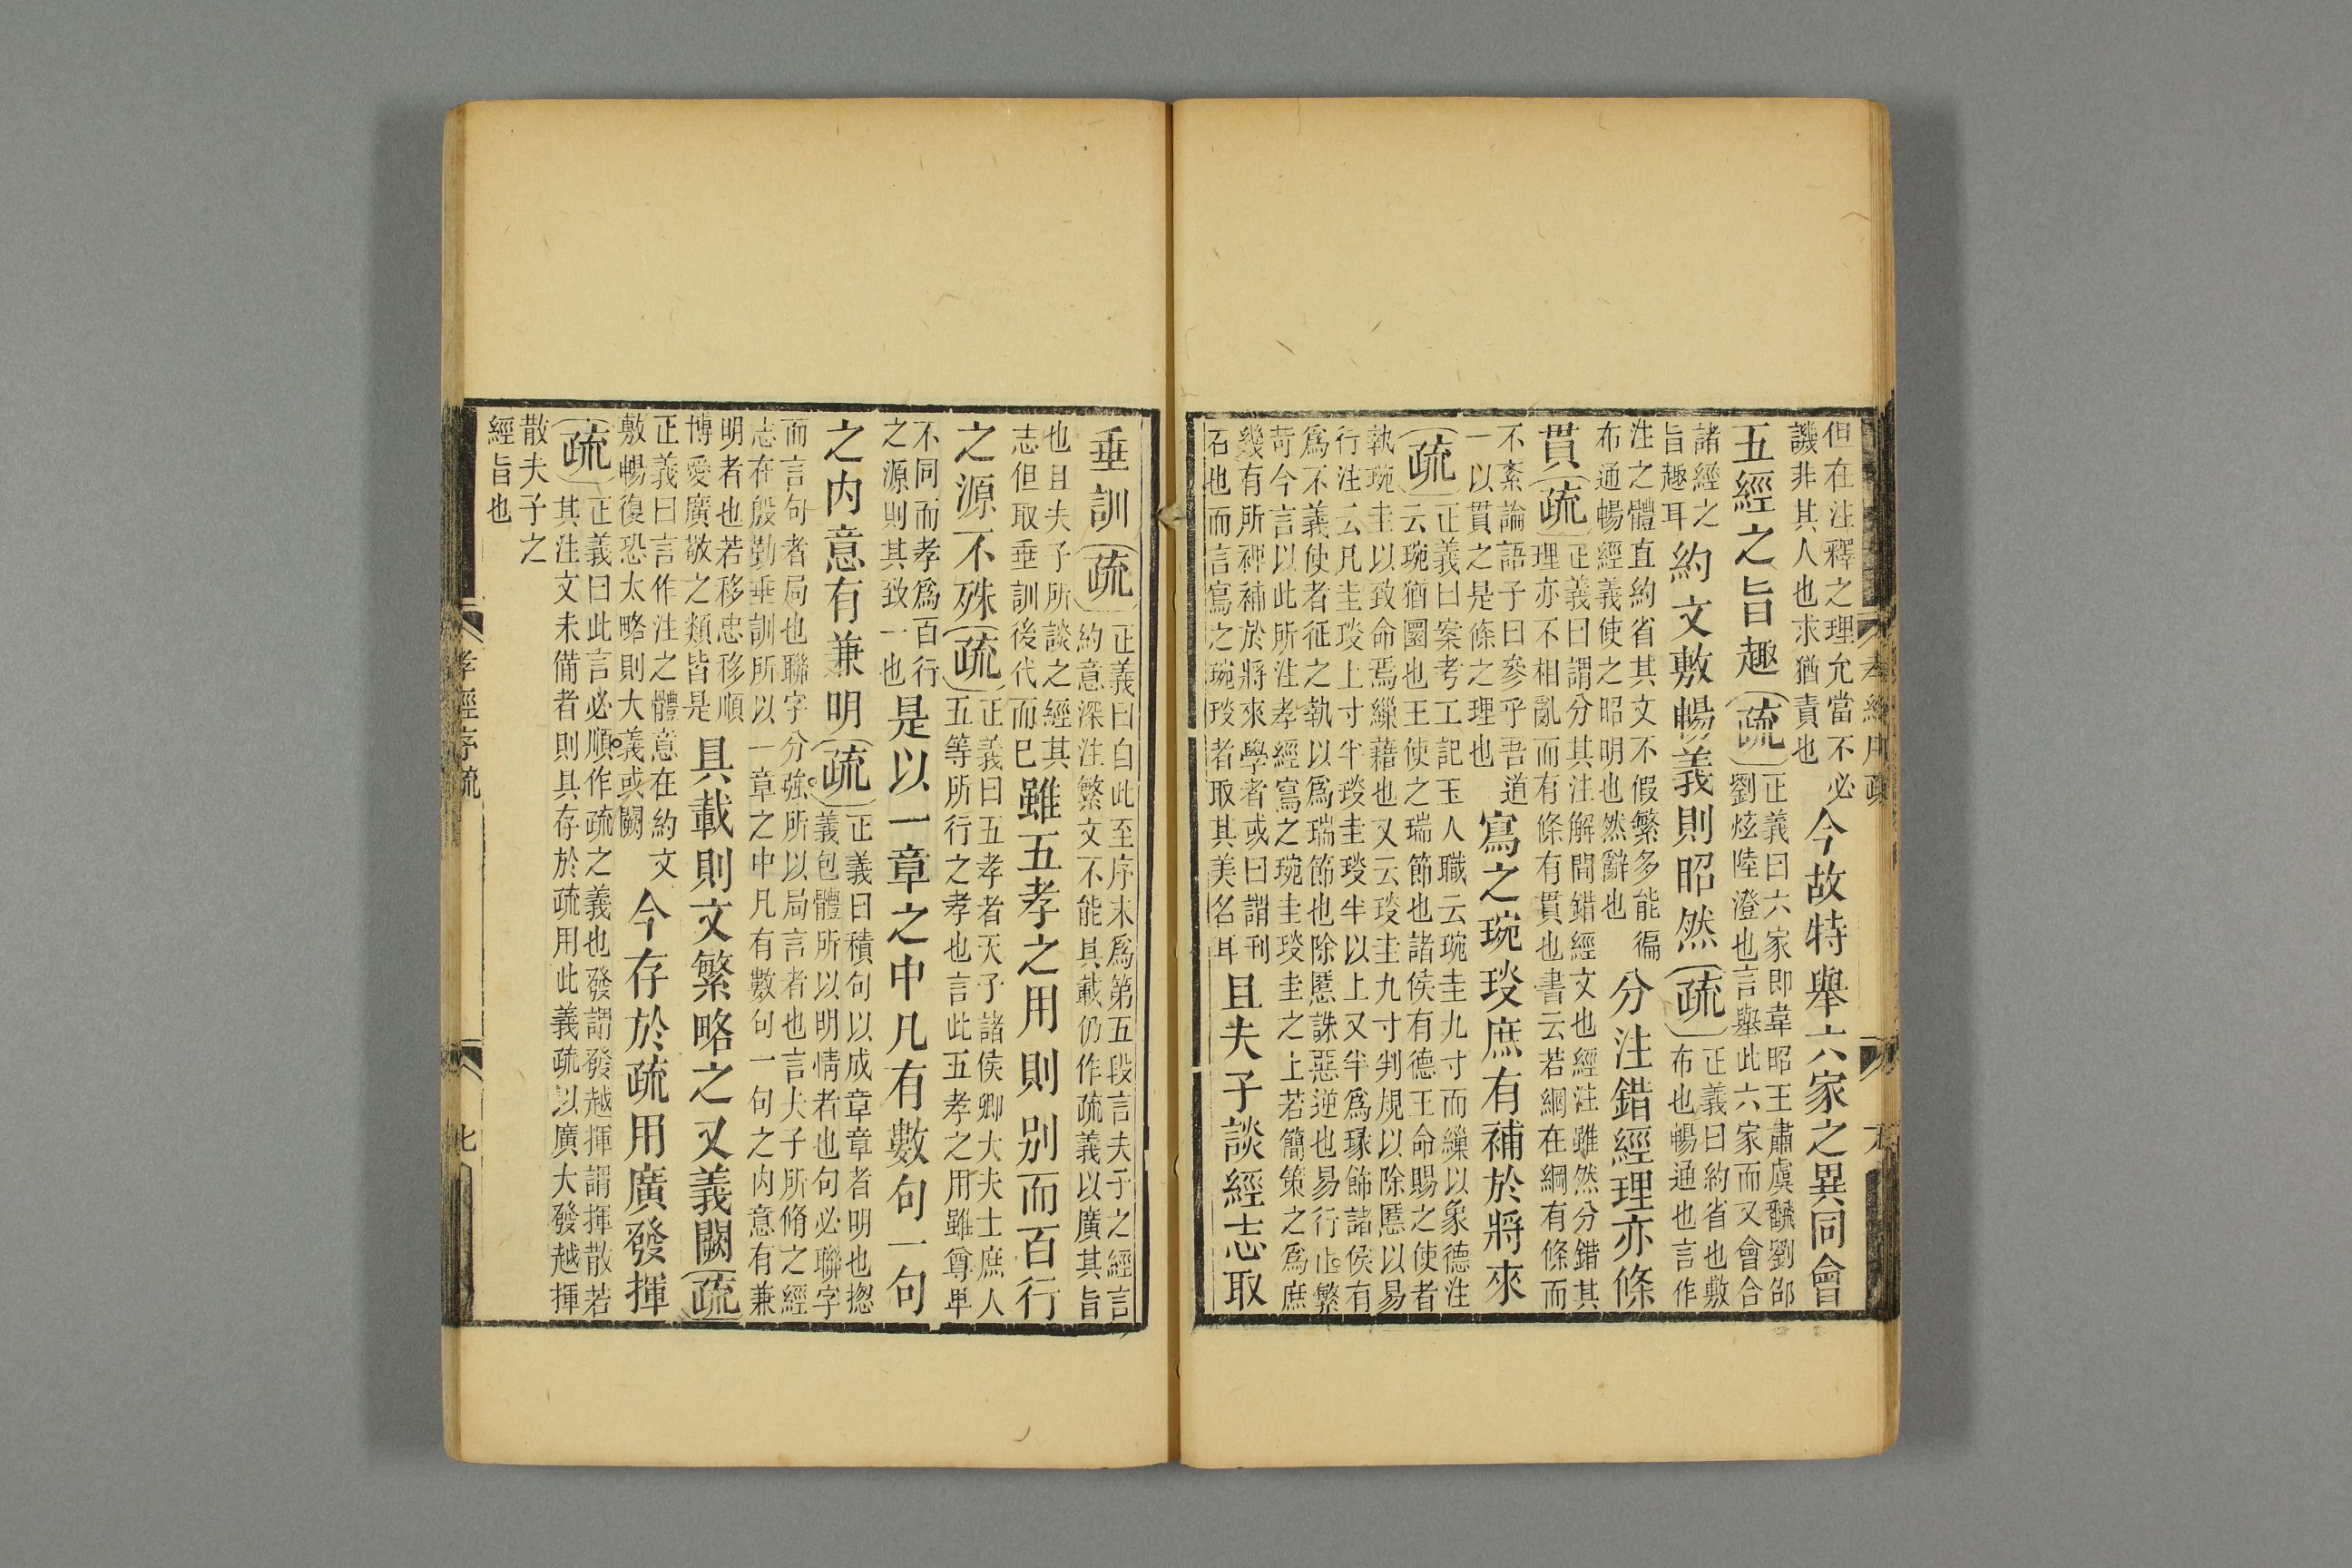 但在注釋之理允當不必
譏非其人也求猶責也
今故特舉六家之異同會
五經之旨趣
疏
正義曰六家即韋昭王肅虞飜劉邵
劉炫陸澄也言舉此六家而又會合
諸經之
旨趣耳
約文敷暢義則昭然
疏
正義曰約省也敷
布也暢通也言作
注之體直約省其文不假繁多能徧
布通暢經義使之昭明也然辭也
分注錯經理亦條
貫
疏
正義曰謂分其注解間錯經文也經注雖然分錯其
理亦不相亂而有條有貫也書云若網在綱有條而
不紊論語子曰參乎吾道
一以貫之是條之理也
寫之琬琰庶有補於將來
疏
正義曰案考工記玉人職云琬圭九寸而繅以象德注
云琬猶圜也王使之瑞節也諸侯有德王命賜之使者
執琬圭以致命焉繅藉也又云琰圭九寸判規以除慝以易
行注云凡圭琰上寸半琰圭琰半以上又半爲瑑飾諸侯有
爲不義使者征之執以爲瑞節也除慝誅惡逆也易行止繁
苛今言以此所注孝經寫之琬圭琰圭之上若簡策之爲庶
幾有所裨補於將來學者或曰謂刊
石也而言寫之琬琰者取其美名耳
且夫子談經志取
垂訓
疏
正義曰自此至序末爲第五段言夫子之經言
約意深注繁文不能具載仍作疏義以廣其旨
也且夫子所談之經其
志但取垂訓後代而已
雖五孝之用則别而百行
之源不殊
疏
正義曰五孝者天子諸侯卿大夫士庶人
五等所行之孝也言此五孝之用雖尊卑
不同而孝爲百行
之源則其致一也
是以一章之中凡有數句一句
之内意有兼明
疏
正義曰積句以成章章者明也揔
義包體所以明情者也句必聯字
而言句者局也聯字分強所以局言者也言夫子所脩之經
志在殷勤垂訓所以一章之中凡有數句一句之内意有兼
明者也若移忠移順
博愛廣敬之類皆是
具載則文繁略之又義闕
疏
正義曰言作注之體意在約文
敷暢復恐太略則大義或闕
今存於疏用廣發揮
疏
正義曰此言必順作疏之義也發謂發越揮謂揮散若
其注文未備者則具存於疏用此義疏以廣大發越揮
散夫子之
經旨也
孝經序疏
七